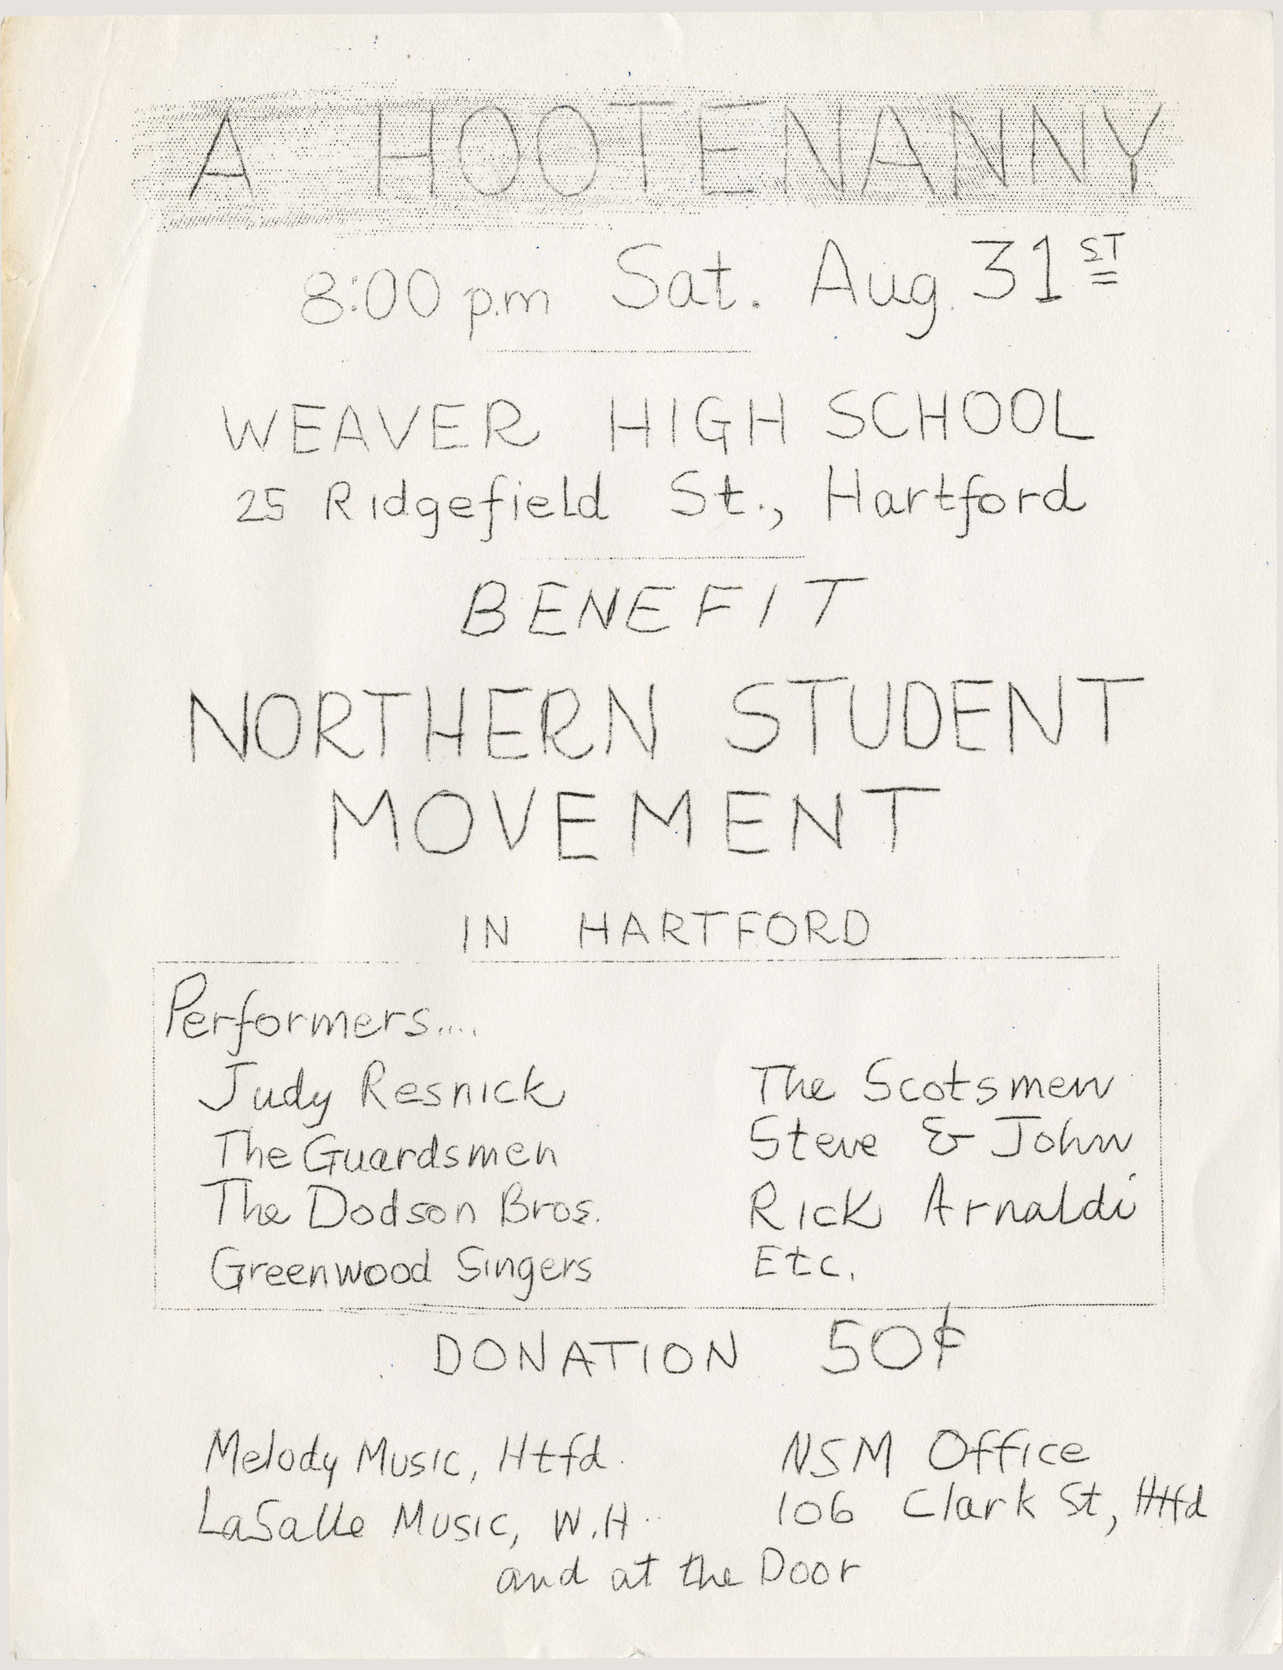 A HOOTENANNY
8:00 p.m Sat. Aug. 31ST
WEAVER HIGH SCHOOL
25 Ridgefield St., Hartford
BENEFIT
NORTHERN STUDENT
MOVEMENT
IN HARTFORD
Performers....
Judy Resnick
The Guardsmen
The Dodson Bros.
Greenwood Singers
The Scotsmen
Steve & John
Rick Arnaldi
Etc.
DONATION 50¢
Melody Music, Htfd.
LaSalle Music, W.H.
NSM Office
106 Clark St, Htfd
and at the Door